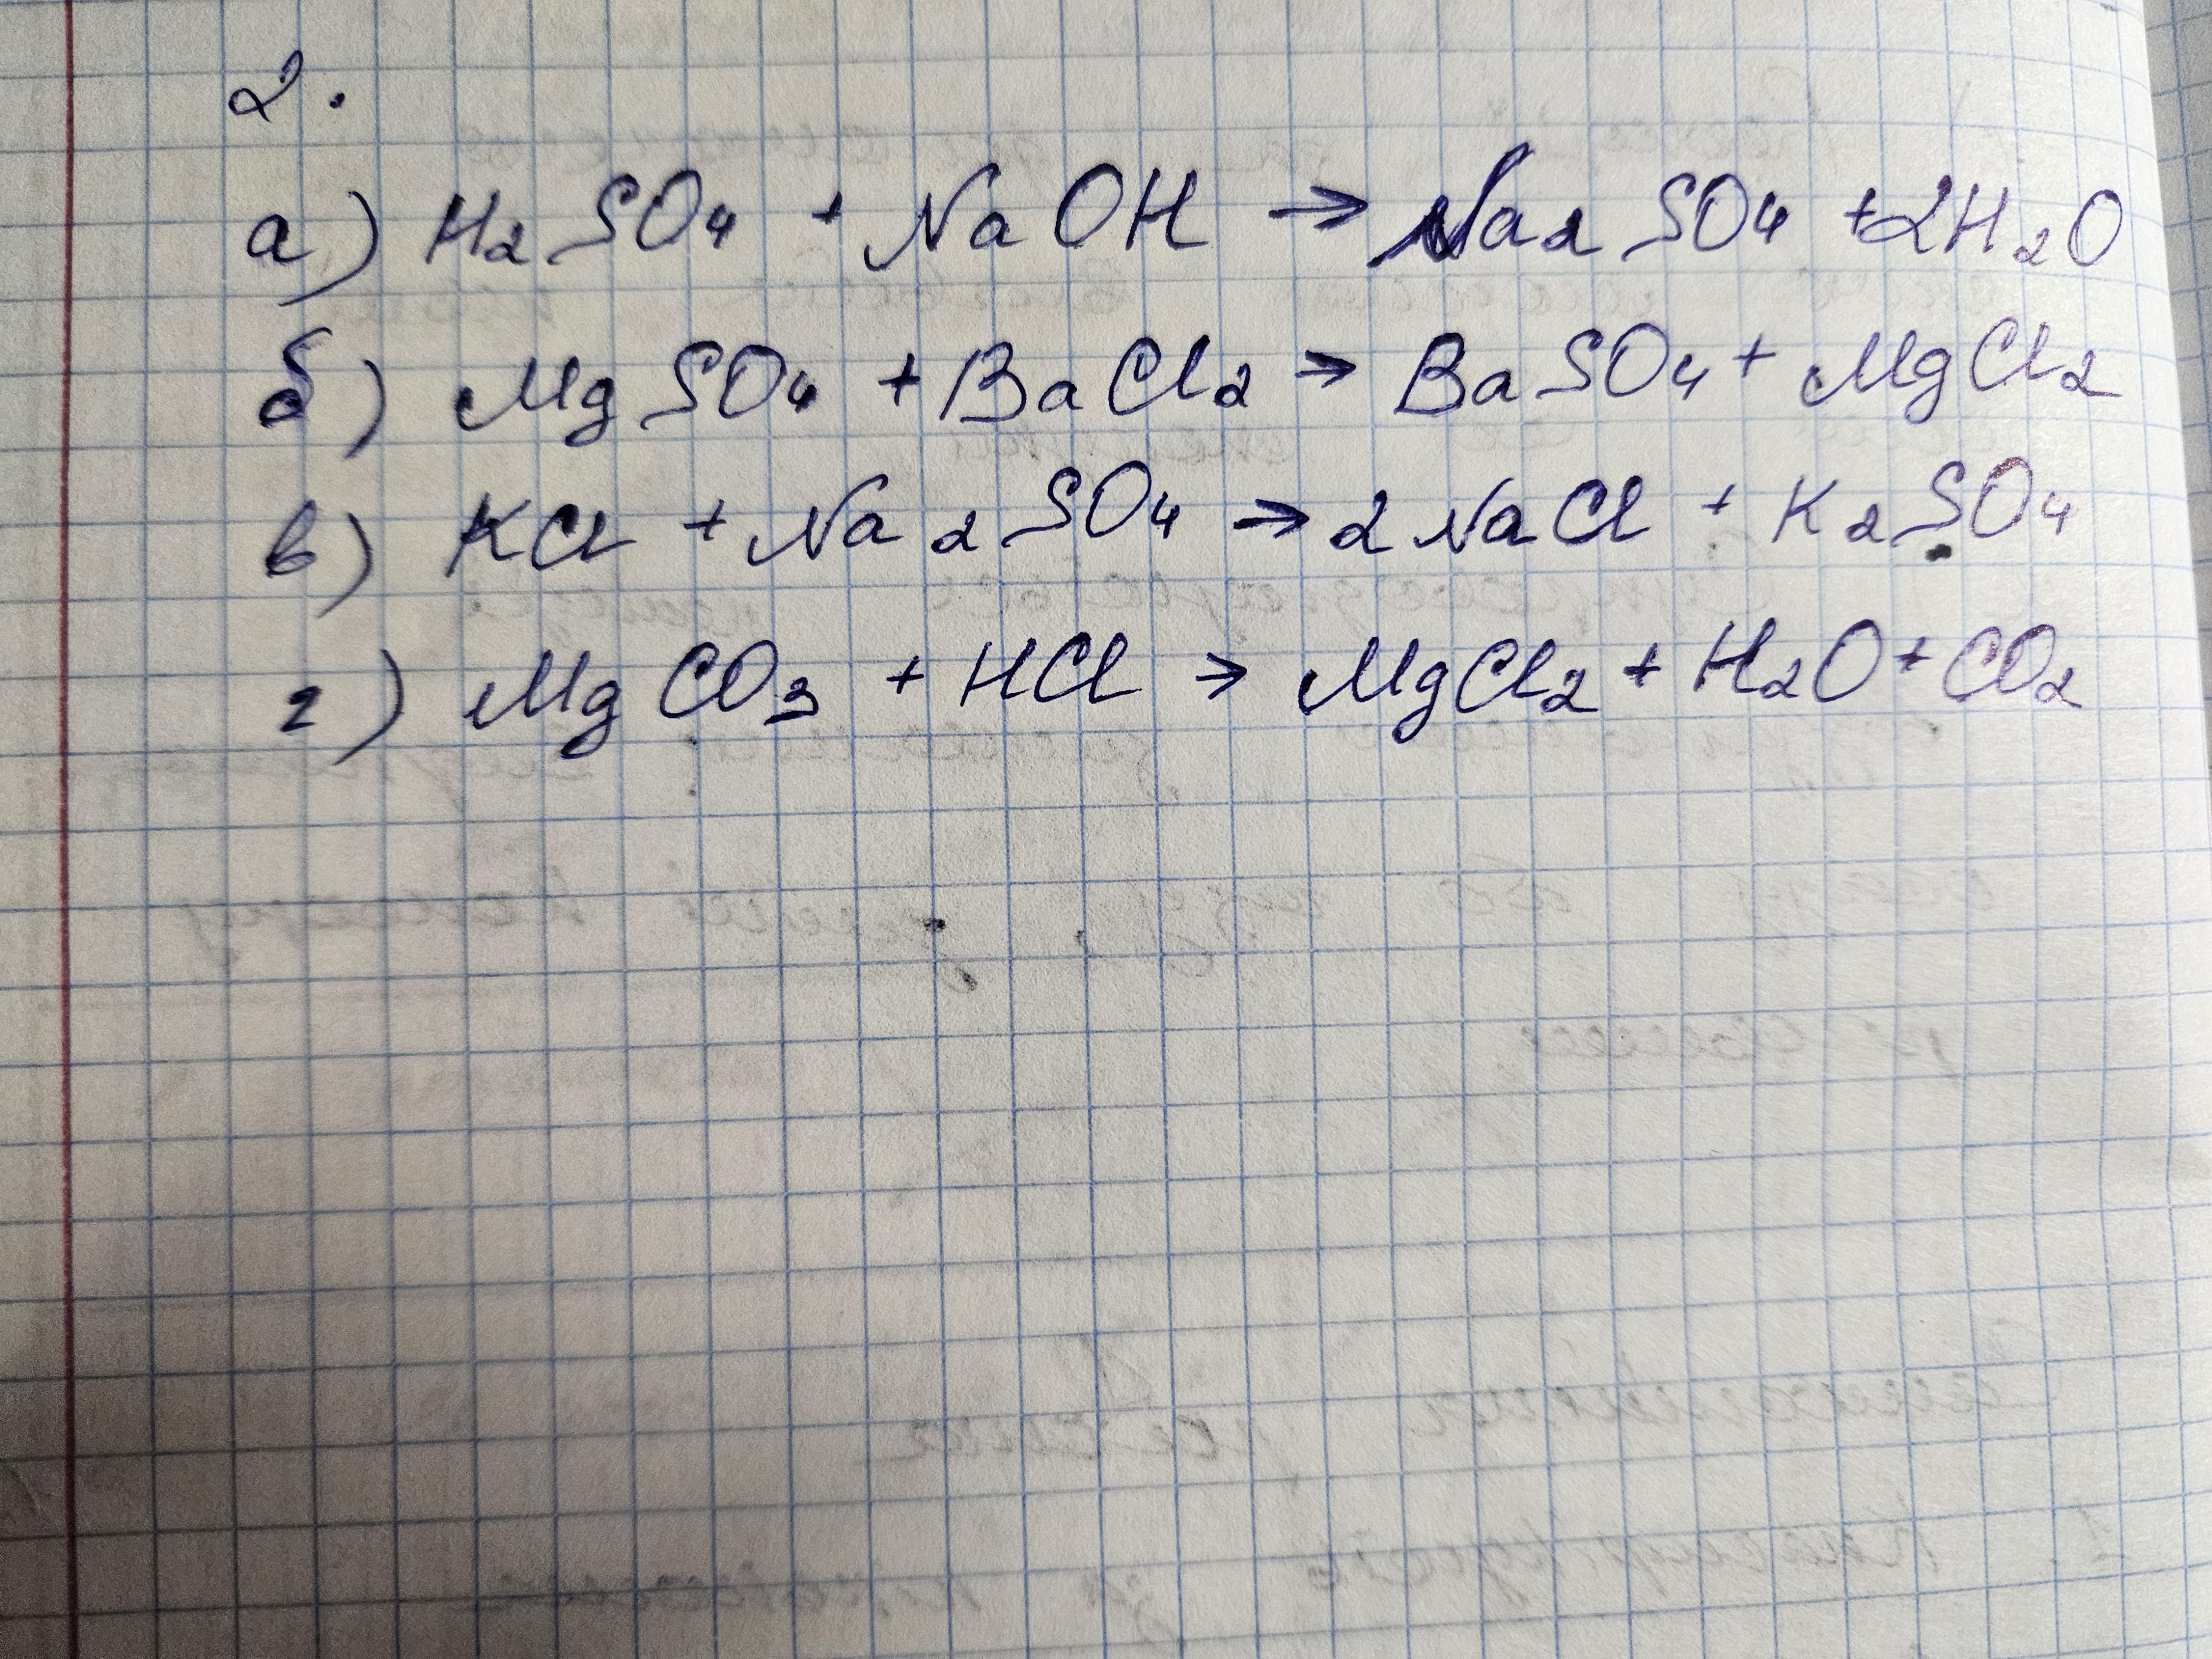 2.
а) H₂SO₄ + NaOH → Na₂SO₄ + 2H₂O
б) MgSO₄ + BaCl₂ → BaSO₄ + MgCl₂
в) KCl + Na₂SO₄ → 2NaCl + K₂SO₄
г) MgCO₃ + HCl → MgCl₂ + H₂O + CO₂